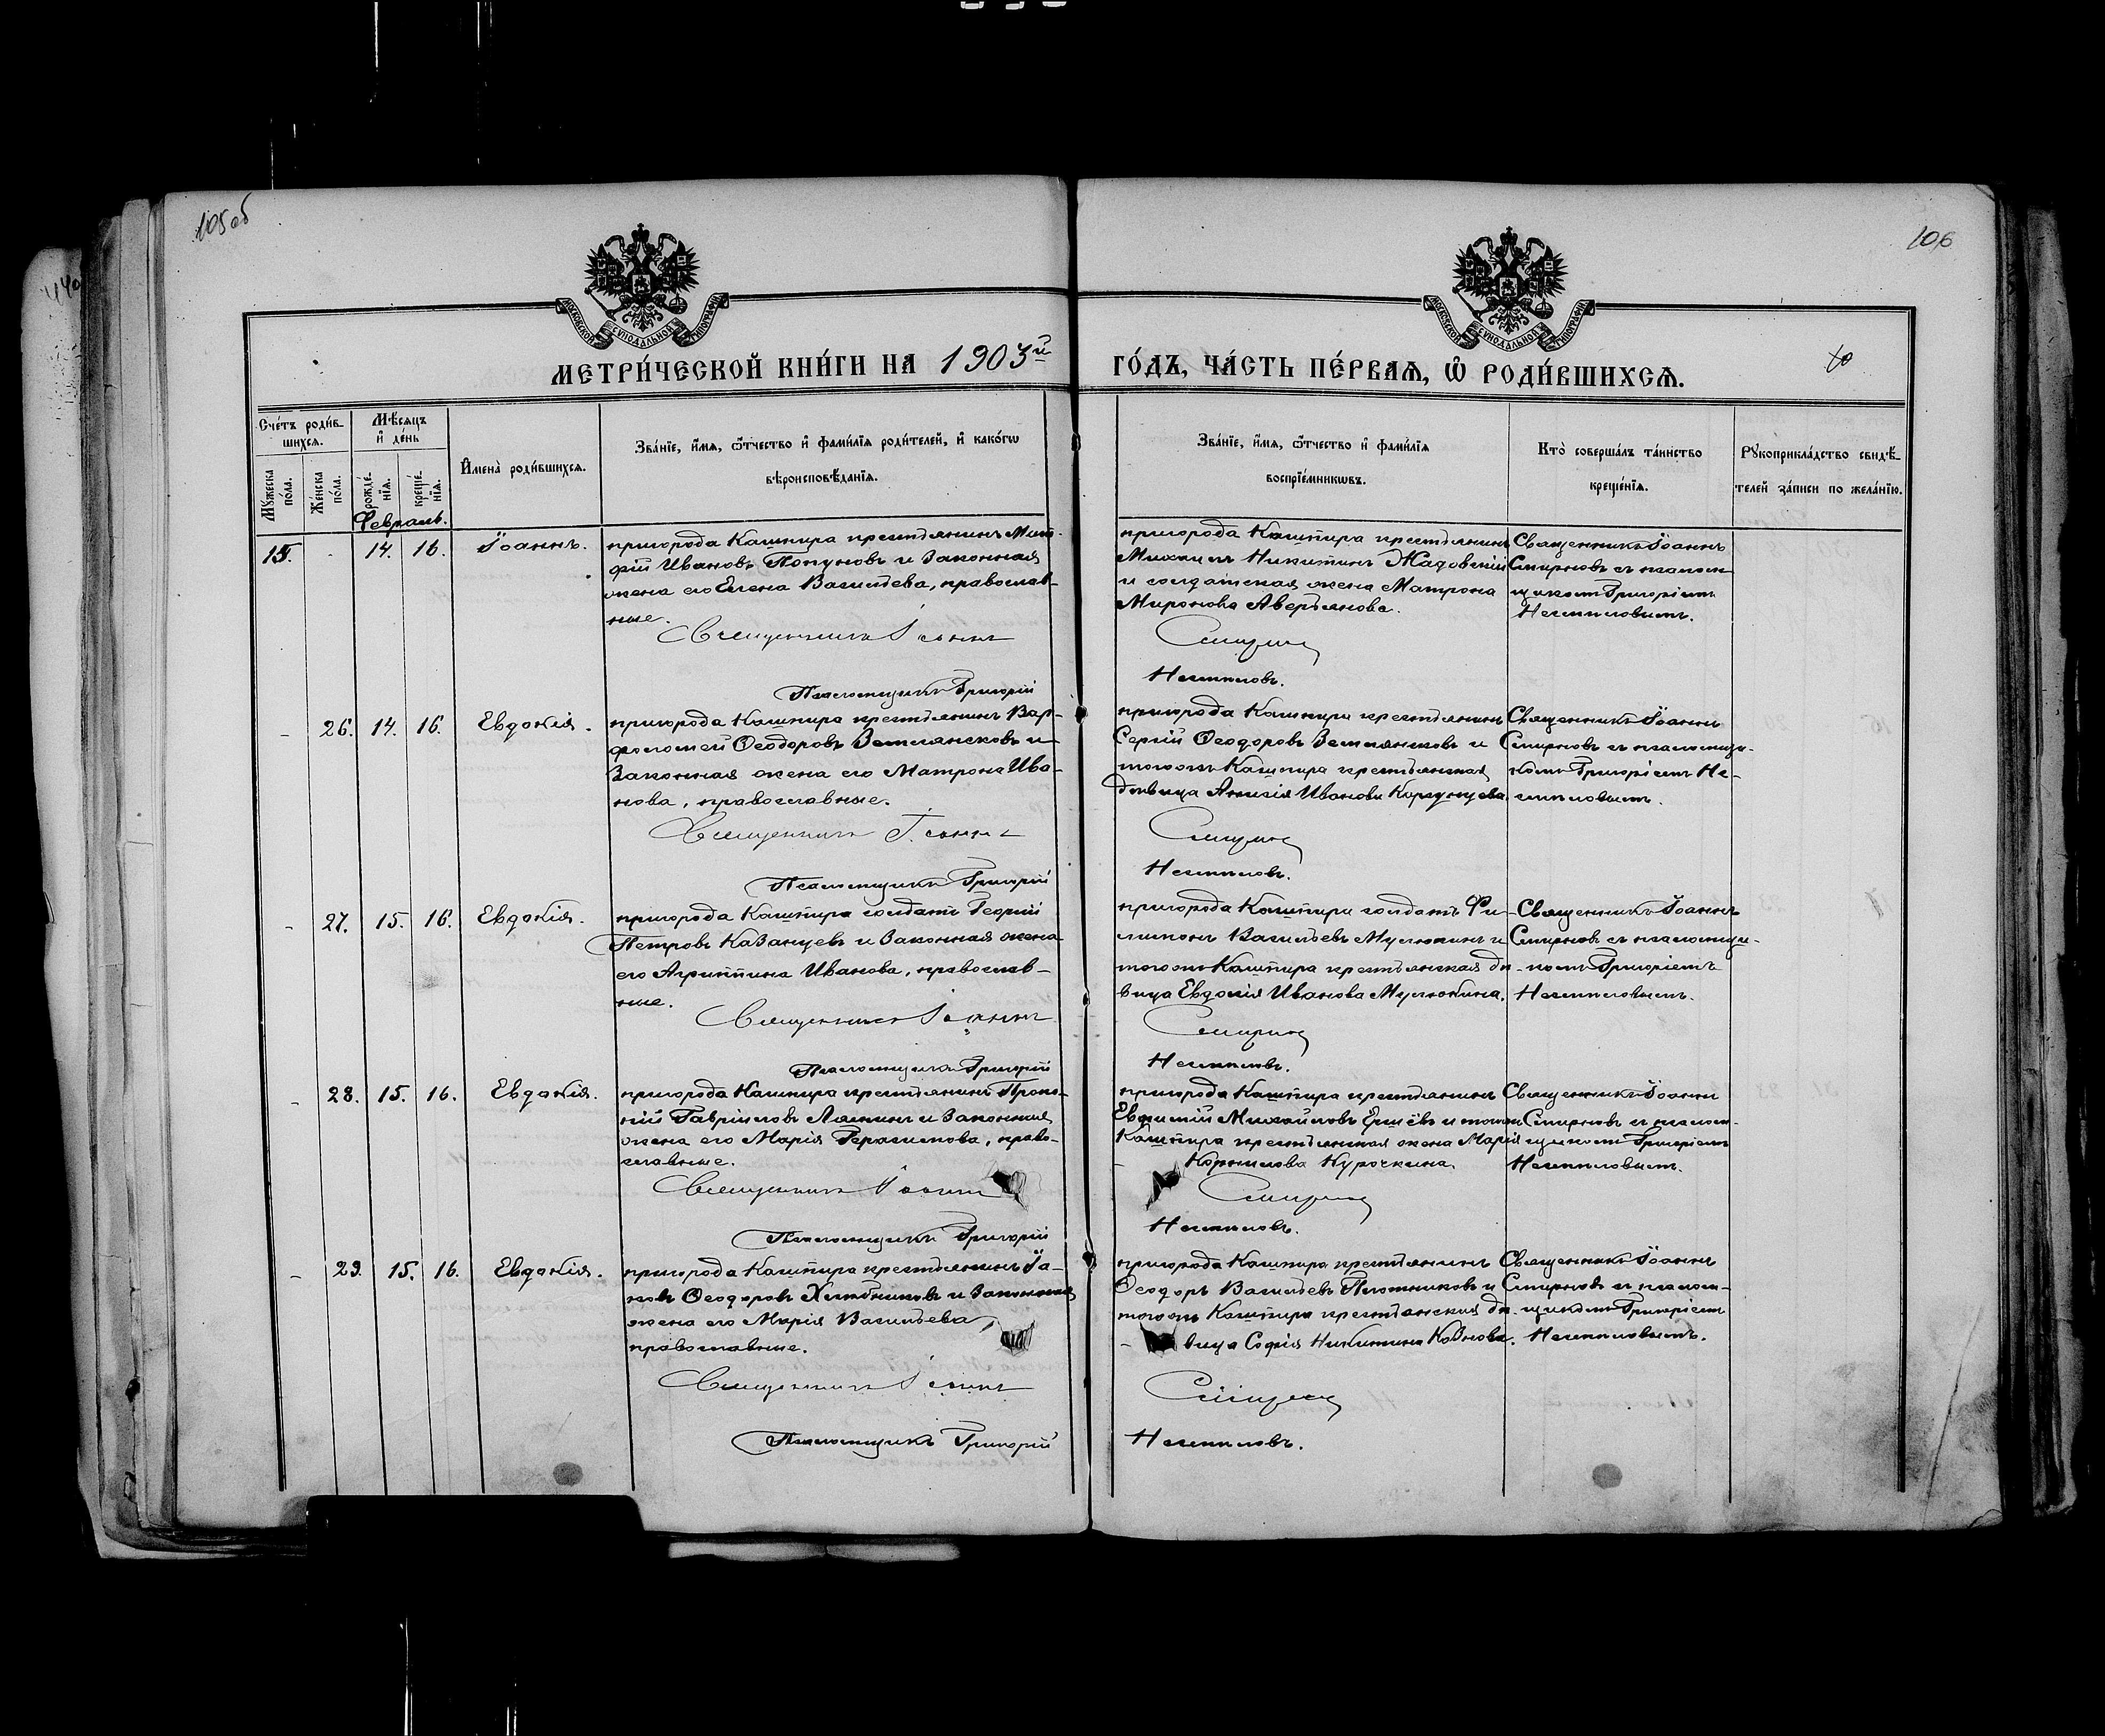 105 об
106
МЕТРИ́ЧЕСКОЙ КНИ́ГИ НА 1903й ГО́ДЪ, ЧА́СТЬ ПЕ́РВАѦ, Ѡ҆ РОДИ́ВШИХСѦ.
МОСКОВСКОЙ СѴНОДАЛЬНОЙ ТИПОГРАФІИ
МОСКОВСКОЙ СѴНОДАЛЬНОЙ ТИПОГРАФІИ
Сче́тъ роди́в-
шихсѧ.
Мꙋ́жеска по́ла.
Же́нска по́ла.
Мѣ́сѧцъ
и҆ де́нь
рожде́-
нїѧ.
креще́-
нїѧ.
И҆мена̀ роди́вшихсѧ.
Зва́нїе, и҆́мѧ, ѻ҆́тчество и҆ фами́лїѧ роди́телей, и҆ како́гѡ
вѣроисповѣ́данїѧ.
Зва́нїе, и҆́мѧ, ѻ҆́тчество и҆ фами́лїѧ
воспрїе́мникѡвъ.
Кто̀ соверша́лъ та́инство
креще́нїѧ.
Рꙋкоприкла́дство свидѣ́-
телей за́писи по жела́нїю.
Февраль.
15. - 14. 16. Іоаннъ.
пригорода Кашпира крестьянинъ
фій Ивановъ и законная
жена его Елена Васильева, православ-
ные.
Священникъ Іоаннъ
Псаломщикъ Григорій
пригорода Кашпира крестьянинъ
Михаилъ Никитинъ Жадовскій
и солдатская жена Матрона
Миронова Аверьянова.
Смирновъ
Священникъ Іоаннъ
Смирновъ съ псалом-
щикомъ Григоріемъ
- 26. 14. 16. Евдокія.
пригорода Кашпира крестьянинъ Вар-
фоломей Ѳеодоровъ Земляс­ковъ и
законная жена его Матрона Ива-
нова, православные.
Священникъ Іоаннъ
Псаломщикъ Григорій
пригорода Кашпира крестьянинъ
Сергій Ѳеодоровъ и
того же Кашпира крестьянская
дѣвица Анисія Иванова
Смирновъ
Священникъ Іоаннъ
Смирновъ съ псаломщи-
комъ Григоріемъ
- 27. 15. 16. Евдокія.
пригорода Кашпира солдатъ Георгій
Петровъ Казанцевъ и законная жена
его Агриппина Иванова, православ-
ные.
Священникъ Іоаннъ
Псаломщикъ Григорій
пригорода Кашпира солдатъ Фи-
лимонъ Васильевъ Муслюкинъ и
того же Кашпира крестьянская дѣ-
вица Евдокія Иванова Муслюкина.
Смирновъ
Священникъ Іоаннъ
Смирновъ съ псаломщи-
комъ Григоріемъ
- 28. 15. 16. Евдокія.
пригорода Кашпира крестьянинъ Проко-
пій Гавріиловъ Ляпинъ и законная
жена его Марія Герасимова, право-
славные.
Священникъ Іоаннъ
Псаломщикъ Григорій
пригорода Кашпира крестьянинъ
Евфимій Михайловъ Ершёвъ и того же
Кашпира крестьянская жена Марія
Корнилова Курочкина.
Смирновъ
Священникъ Іоаннъ
Смирновъ съ псалом-
щикомъ Григоріемъ
- 29. 15. 16. Евдокія.
пригорода Кашпира крестьянинъ Іа-
ковъ Ѳеодоровъ Хлѣбниковъ и законная
жена его Марія Васильева,
православные.
Священникъ Іоаннъ
Псаломщикъ Григорій
пригорода Кашпира крестьянинъ
Ѳеодоръ Васильевъ Плотниковъ и
того же Кашпира крестьянская дѣ-
вица Софія Никитина
Смирновъ
Священникъ Іоаннъ
Смирновъ съ псалом-
щикомъ Григоріемъ